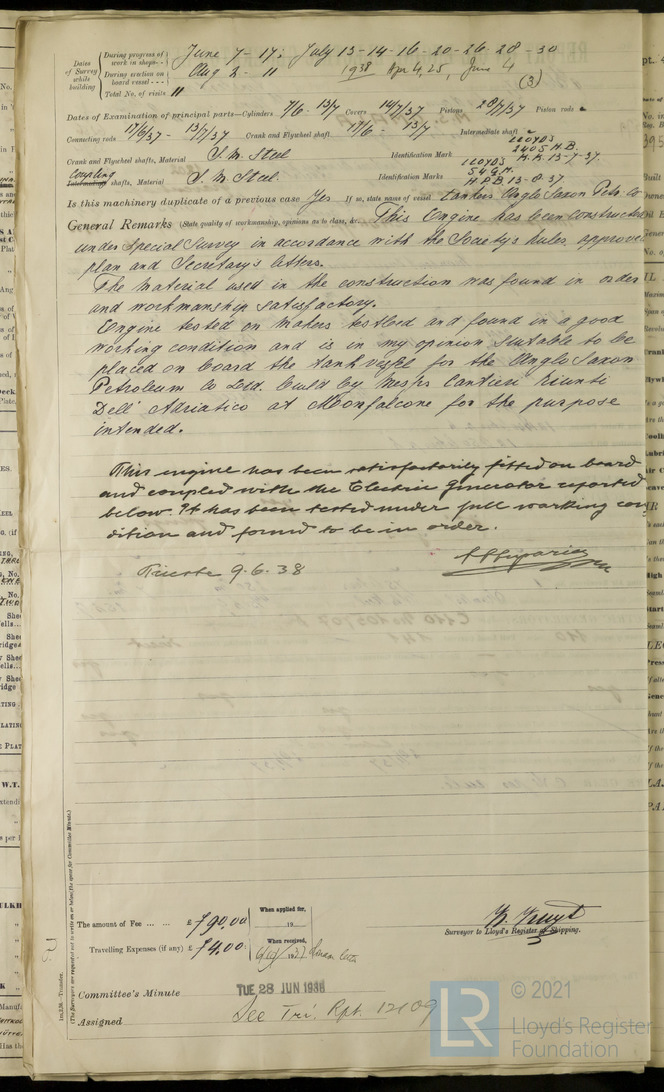 Dates of Survey while building
During progress of work in shops - - June 7-17; July 13-14-16-20-26-28-30
During erection on board vessel - - - Aug 2-11 1938 Apr 4, 25, June 4
Total No. of visits 11 (3)
Dates of Examination of principal parts—Cylinders 7/6 - 13/7 Covers 14/7/37 Pistons 28/7/37 Piston rods
Connecting rods 17/6/37 - 13/7/37 Crank and Flywheel shaft 17/6 - 13/7 Intermediate shaft
Crank and Flywheel shafts, Material S. M. Steel Identification Mark LLOYDS 2405 H.B. H.K. 13-7-37.
Coupling Intermediate shafts, Material S. M. Steel Identification Marks LLOYDS 54 G.H. H.P.B. 13-8-37
Is this machinery duplicate of a previous case Yes If so, state name of vessel tankers Anglo Saxon Petr. Co
General Remarks (State quality of workmanship, opinions as to class, &c. This Engine has been constructed
under Special Survey in accordance with the Society's Rules, approved
plan and Secretary's letters.
The material used in the construction was found in order
and workmanship satisfactory.
Engine tested on Makers testbed and found in a good
working condition and is in my opinion suitable to be
placed on board the tank vessel for the Anglo Saxon
Petroleum Co Ltd. build by Messrs Cantieri Riuniti
Dell' Adriatico at Monfalcone for the purpose
intended.
This engine has been satisfactorily fitted on board
and coupled with the Electric Generator reported
below. It has been tested under full working con
dition and found to be in order.
Trieste 9.6.38
The amount of Fee ... ... £ 790.00
When applied for,
19
Travelling Expenses (if any) £ 74.00
When received,
Surveyor to Lloyd's Register of Shipping.
Committee's Minute TUE 28 JUN 1938
Assigned See Tri. Rpt. 12109
(The Surveyors are requested not to write on or below the space for Committee's Minute.)
© 2021
LR
Lloyd's Register
Foundation